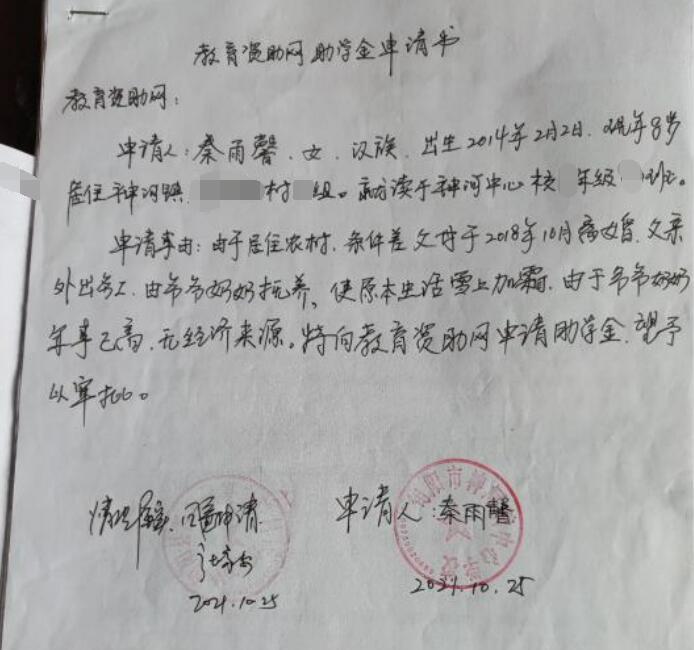 教育资助网助学金申请书
教育资助网：
申请人：秦雨馨、女、汉族、出生2014年2月2日、现年8岁
居住神河镇 村 组。就读于神河中心校 年级 班。
申请事由：由于居住农村、条件差父母于2018年10月离婚、父亲
外出务工、由爷爷奶奶抚养、使原本生活雪上加霜、由于爷爷奶奶
年事已高、无经济来源。特向教育资助网申请助学金、望予
以审批。
情况属实、同意申请
申请人：秦雨馨
2021.10.25
2021.10.25